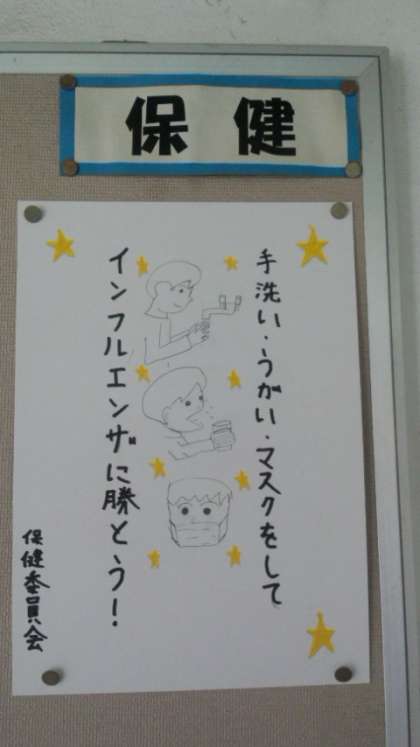 保健
手洗い・うがい・マスクをして
インフルエンザに勝とう！
保健委員会